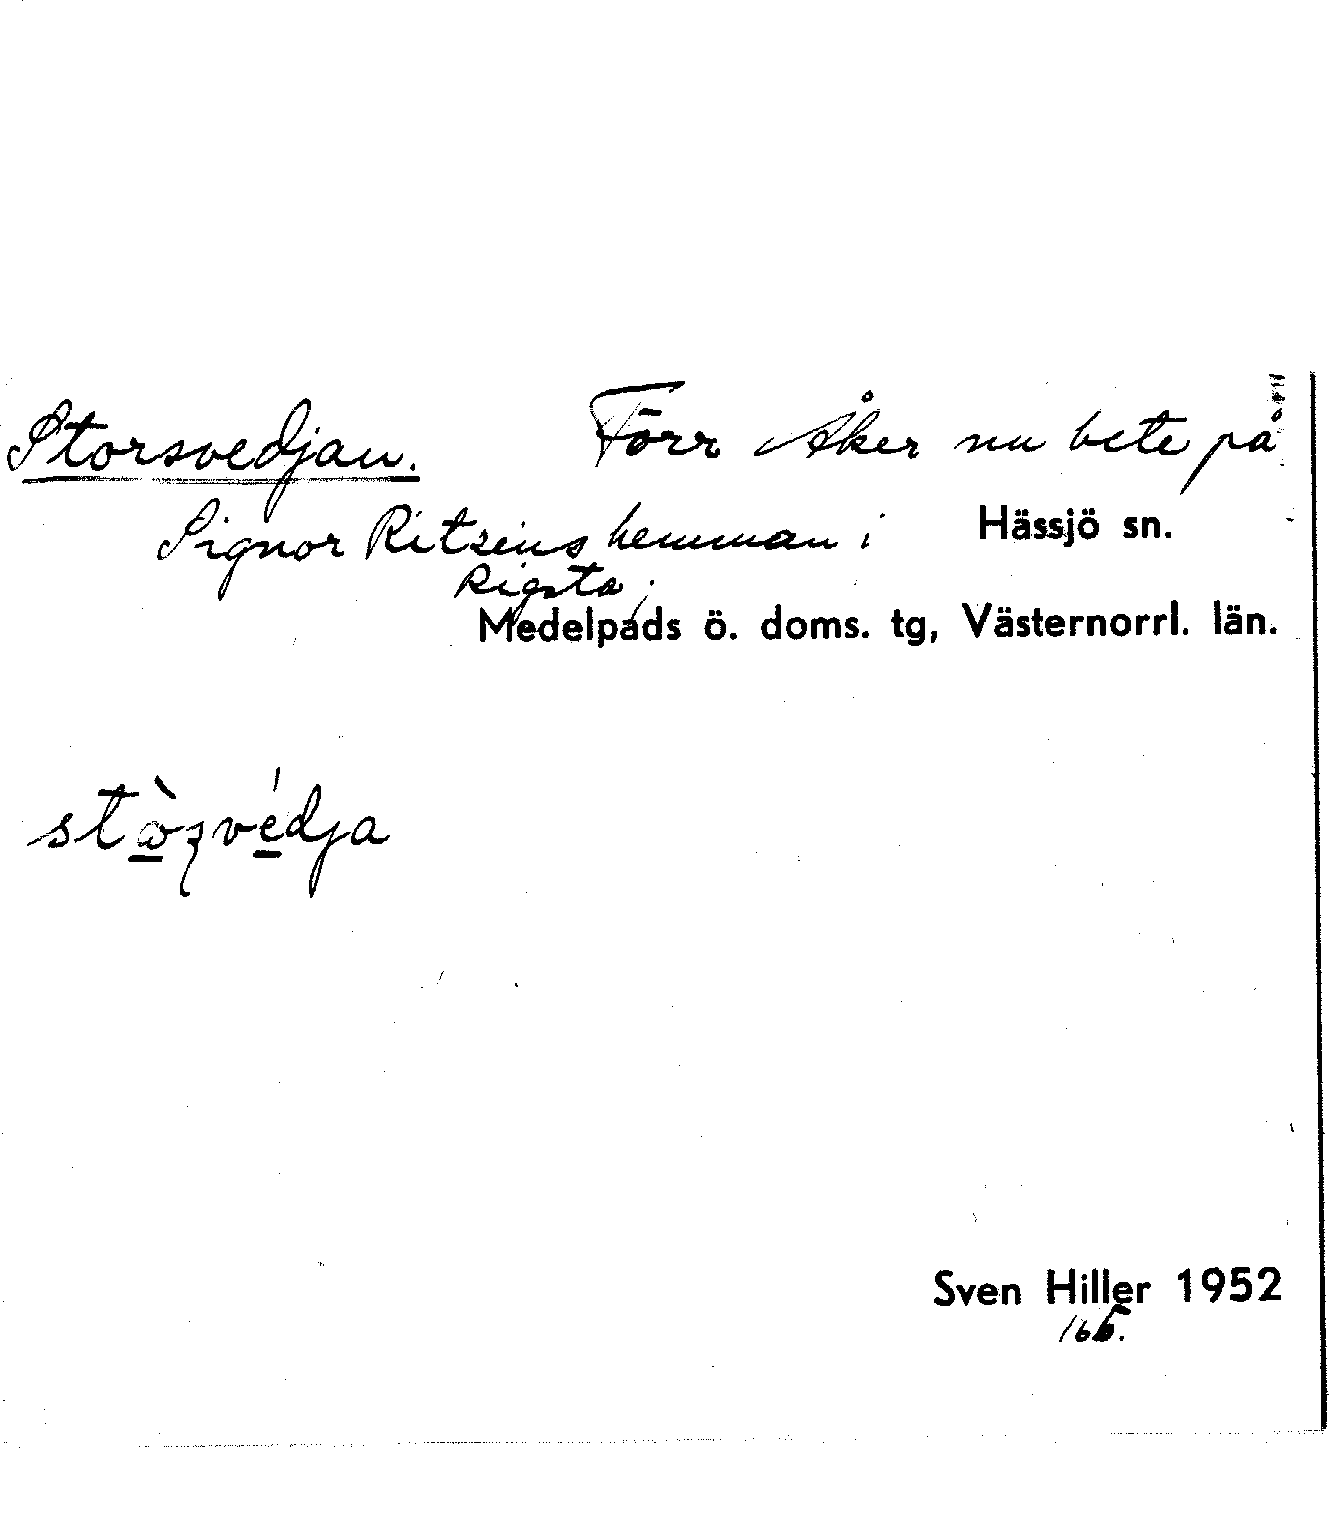 Storsvedjan. Förr åker nu bete på
Signor Ritzéns hemman i Hässjö sn.
Rigsta.
Medelpads ö. doms. tg, Västernorrl. län.
Sven Hiller 1952